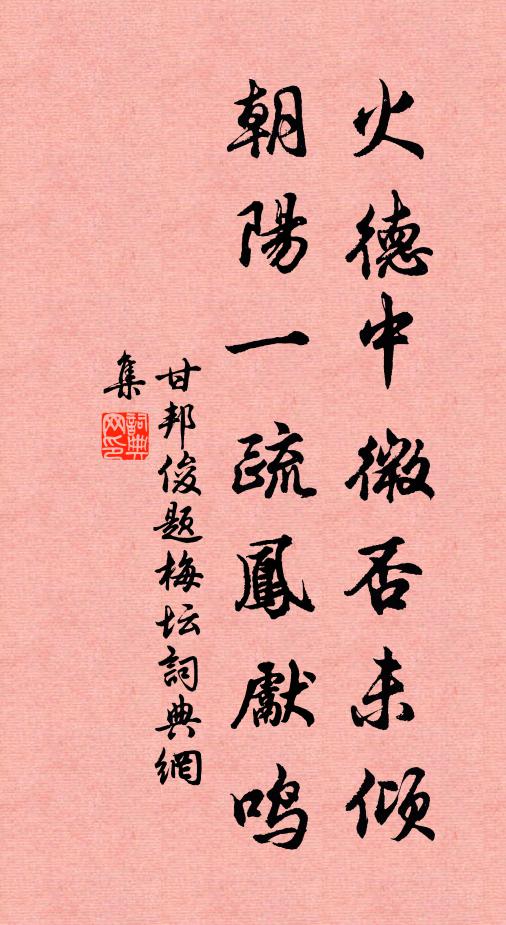 火德中微否未倾
朝陽一疏鳳獻鸣
甘邦俊题梅坛詞典網
集
詞典
网印